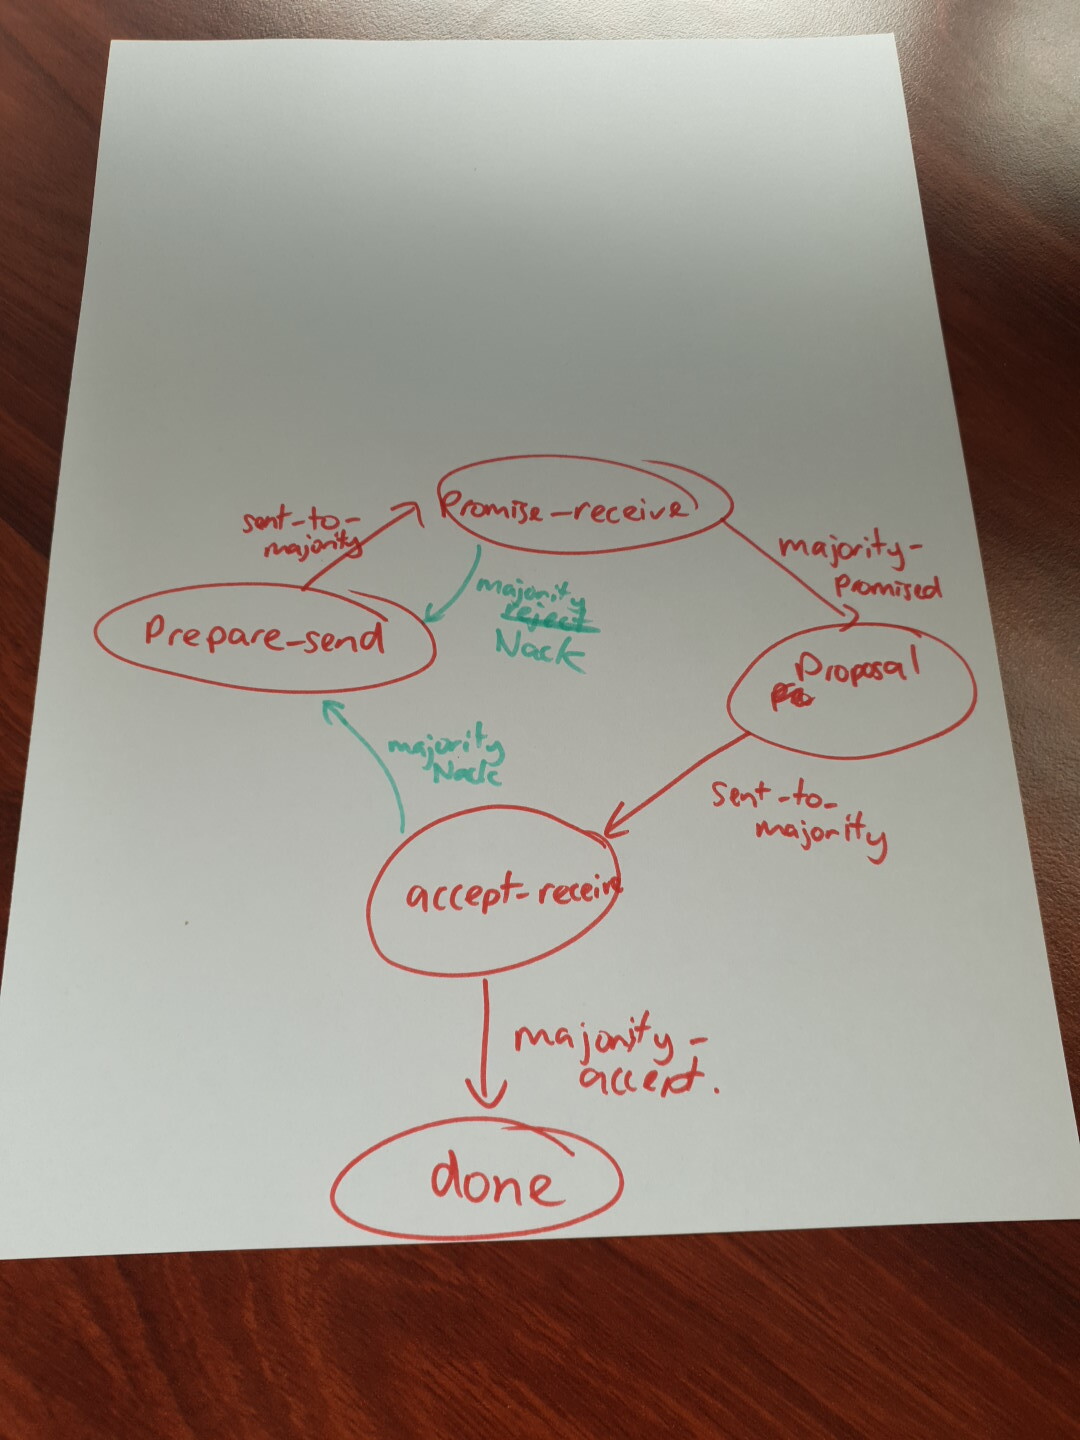 Promise-receive
sent-to-
majority
majority-
promised
majority
reject
Nack
Prepare-send
Proposal
majority
Nack
sent-to-
majority
accept-receive
majority-
accept.
done